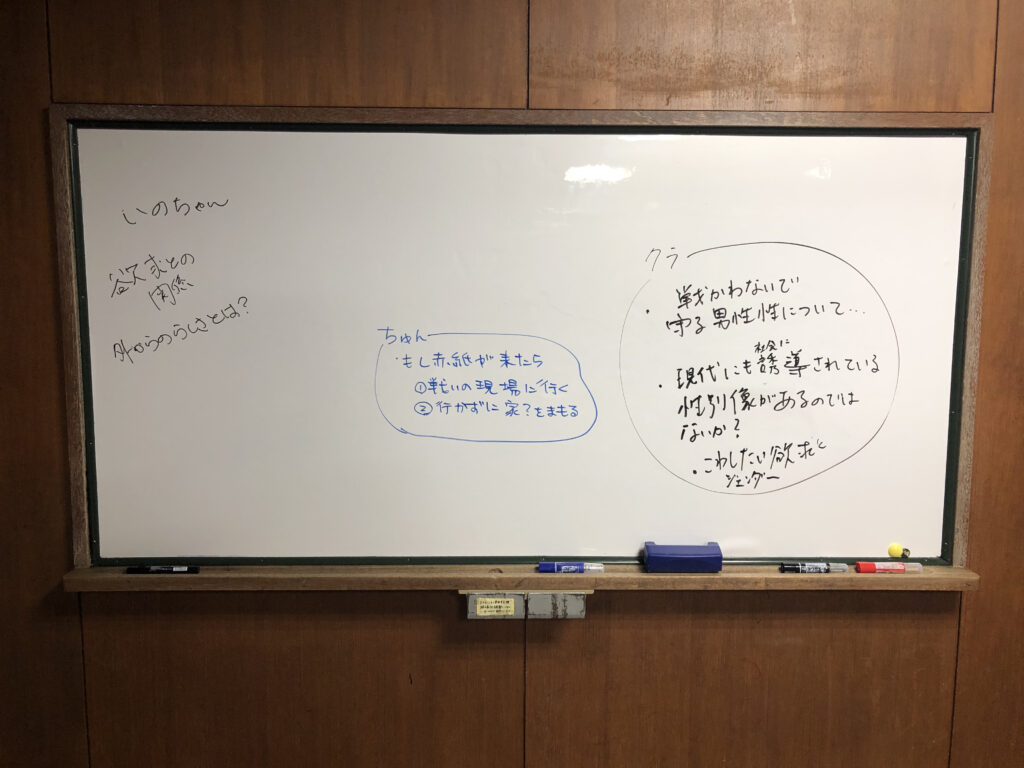 いのちゃん
欲求との
関係
外からのらしさとは?
ちゅん
・もし赤紙が来たら
①戦いの現場に行く
②行かずに家?をまもる
クラ
・戦かわないで
守る男性性について...
社会に
・現代にも誘導されている
性別像があるのでは
ないか?
・こわしたい欲求と
ジェンダー